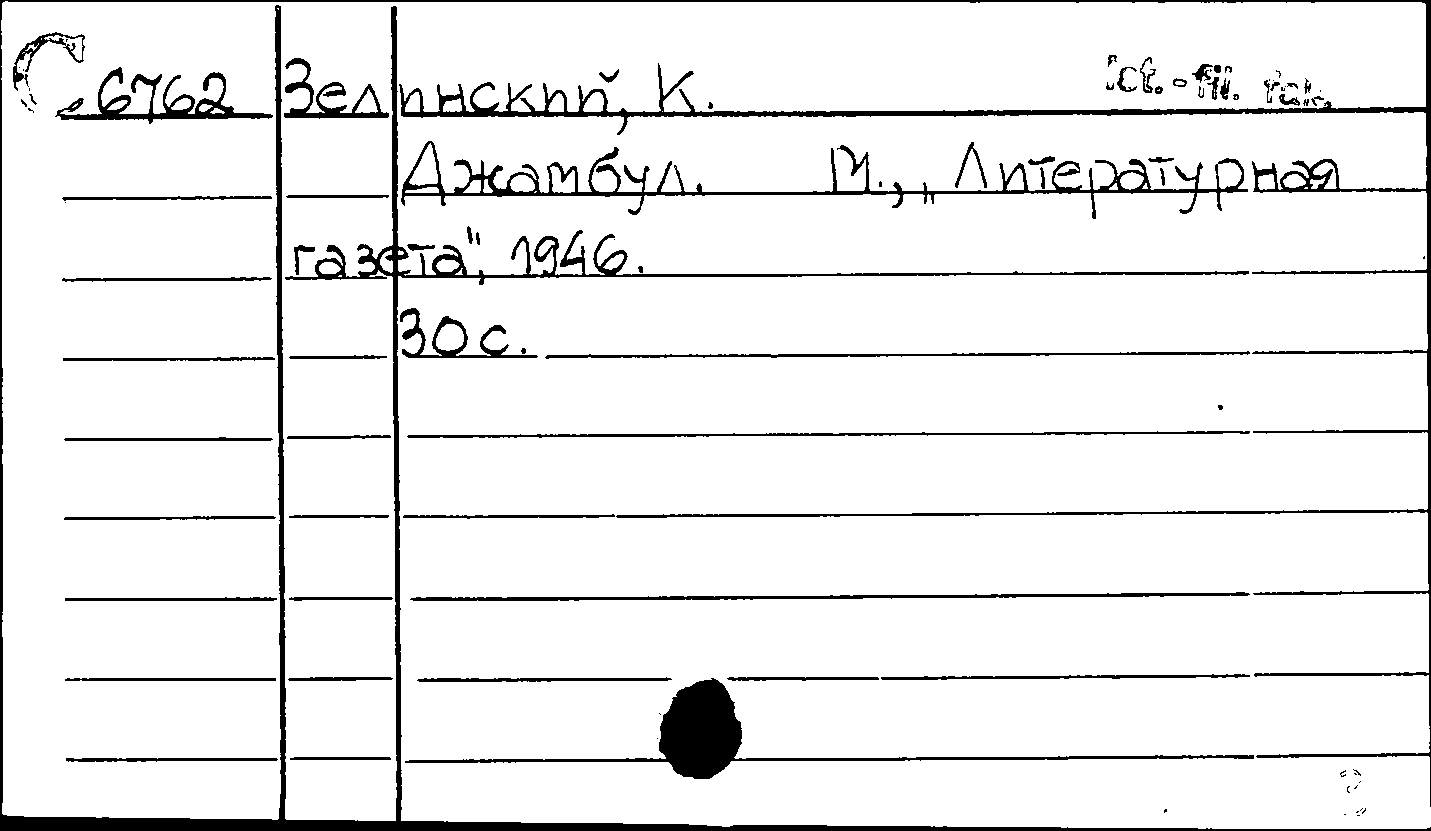 C 6762 Зелинский, К. ict.-fil. fak.
Джамбул. М., „Литературная
газета", 1946.
30 с.